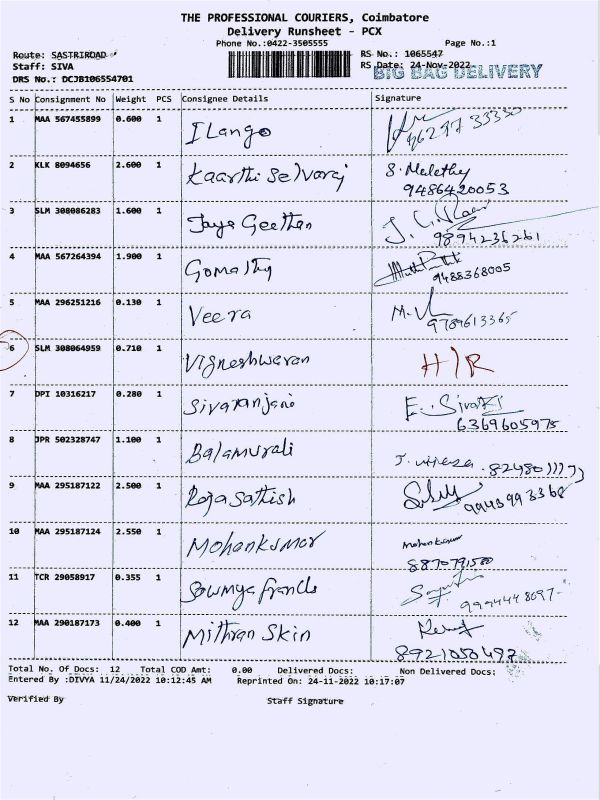 THE PROFESSIONAL COURIERS, Coimbatore
Delivery Runsheet - PCX
Phone No.:0422-3505555 Page No.:1
Route: SASTRIROAD RS No.: 1065547
Staff: SIVA RS Date: 24-Nov-2022
BIG BAG DELIVERY
DRS No.: DCJB106554701
S No Consignment No Weight PCS Consignee Details Signature
1 MAA 567455899 0.600 1 Ilango
2 KLK 8094656 2.600 1 Kaarthi Selvaraj S. Malethy
9486420053
3 SLM 308086283 1.600 1 Jaya Geethan
9894236261
4 MAA 567264394 1.900 1 Gomathy
9488368005
5 MAA 296251216 0.130 1 Veera
9789613365
6 SLM 308064959 0.710 1 Vigneshwaran H/R
7 DPI 10316217 0.280 1 Sivaranjani
6369605975
8 JPR 502328747 1.100 1 Balamurali
9 MAA 295187122 2.500 1 Raja Sathish
9943993368
10 MAA 295187124 2.550 1 Mohankumar Mohankumar
8870791580
11 TCR 29058917 0.355 1 Sowmya Francis
9994448097
12 MAA 290187173 0.400 1 Mithran Skin
8921050497
Total No. Of Docs: 12 Total COD Amt: 0.00 Delivered Docs: Non Delivered Docs:
Entered By :DIVYA 11/24/2022 10:12:45 AM Reprinted On: 24-11-2022 10:17:07
Verified By Staff Signature